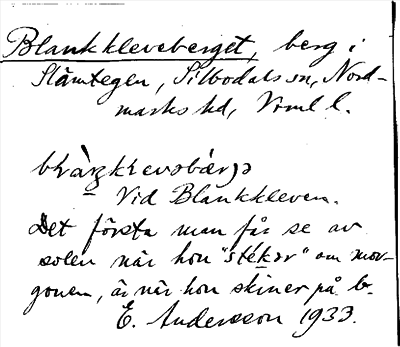 Blankkleveberget, berg i
Slämtegen, Silbodals sn, Nord-
marks hd, Vrml l.
Vid Blankkleven.
Det första man får se av
solen när hon "stékər" om mor-
gonen, är när hon skiner på b.
E. Andersson 1933.